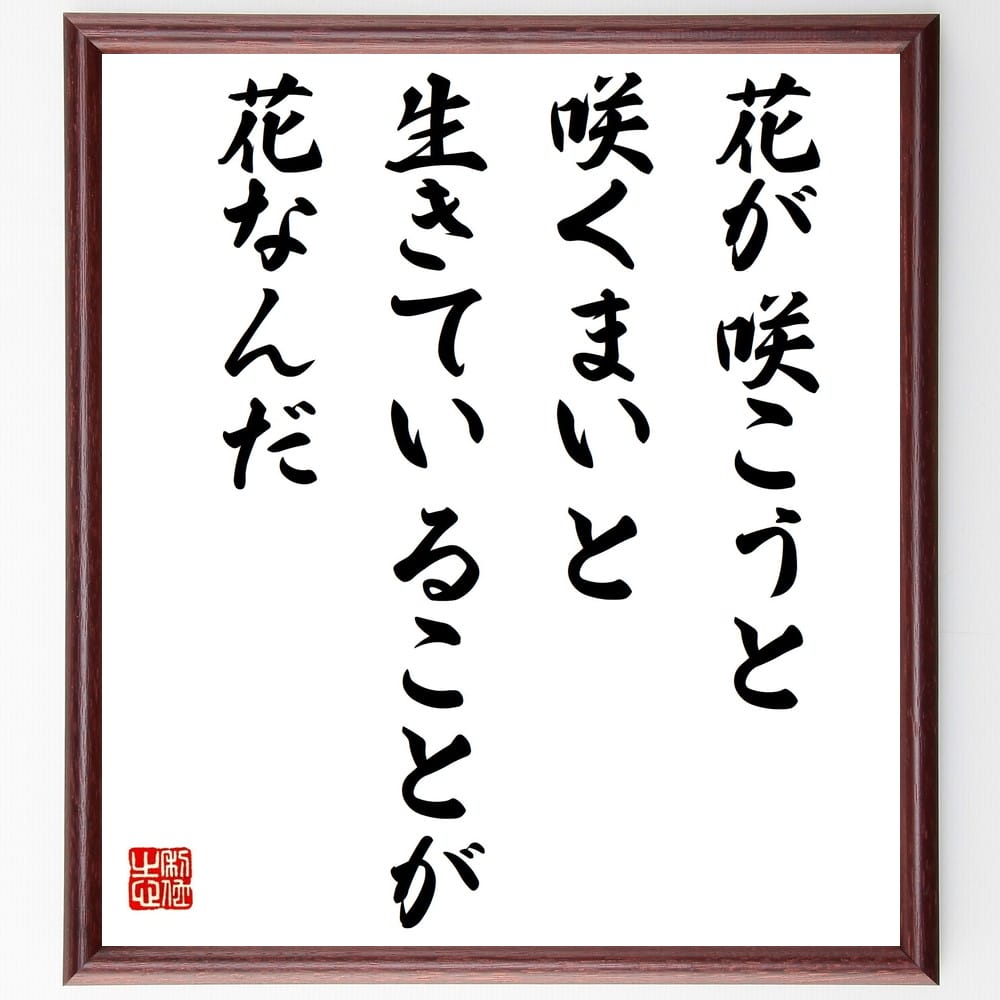 花が咲こうと
咲くまいと
生きていることが
花なんだ